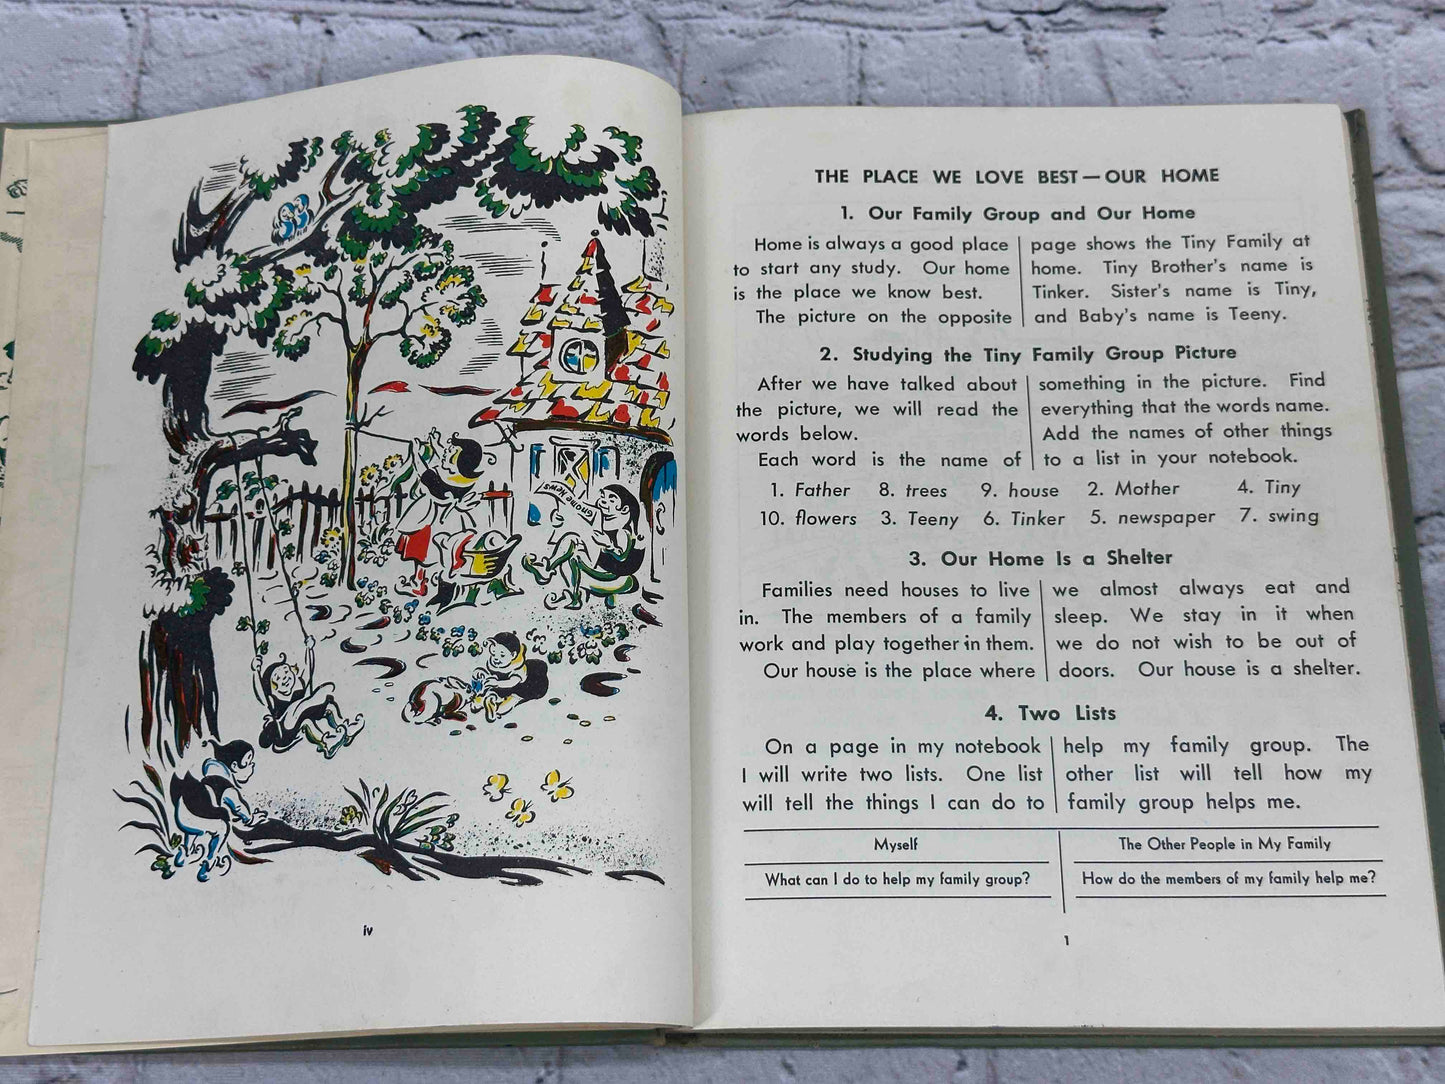 GNOME NEWS
iv
THE PLACE WE LOVE BEST—OUR HOME
1. Our Family Group and Our Home
Home is always a good place
to start any study. Our home
is the place we know best.
The picture on the opposite
page shows the Tiny Family at
home. Tiny Brother's name is
Tinker. Sister's name is Tiny,
and Baby's name is Teeny.
2. Studying the Tiny Family Group Picture
After we have talked about
the picture, we will read the
words below.
Each word is the name of
something in the picture. Find
everything that the words name.
Add the names of other things
to a list in your notebook.
1. Father 8. trees 9. house 2. Mother 4. Tiny
10. flowers 3. Teeny 6. Tinker 5. newspaper 7. swing
3. Our Home Is a Shelter
Families need houses to live
in. The members of a family
work and play together in them.
Our house is the place where
we almost always eat and
sleep. We stay in it when
we do not wish to be out of
doors. Our house is a shelter.
4. Two Lists
On a page in my notebook
I will write two lists. One list
will tell the things I can do to
help my family group. The
other list will tell how my
family group helps me.
Myself
What can I do to help my family group?
The Other People in My Family
How do the members of my family help me?
1